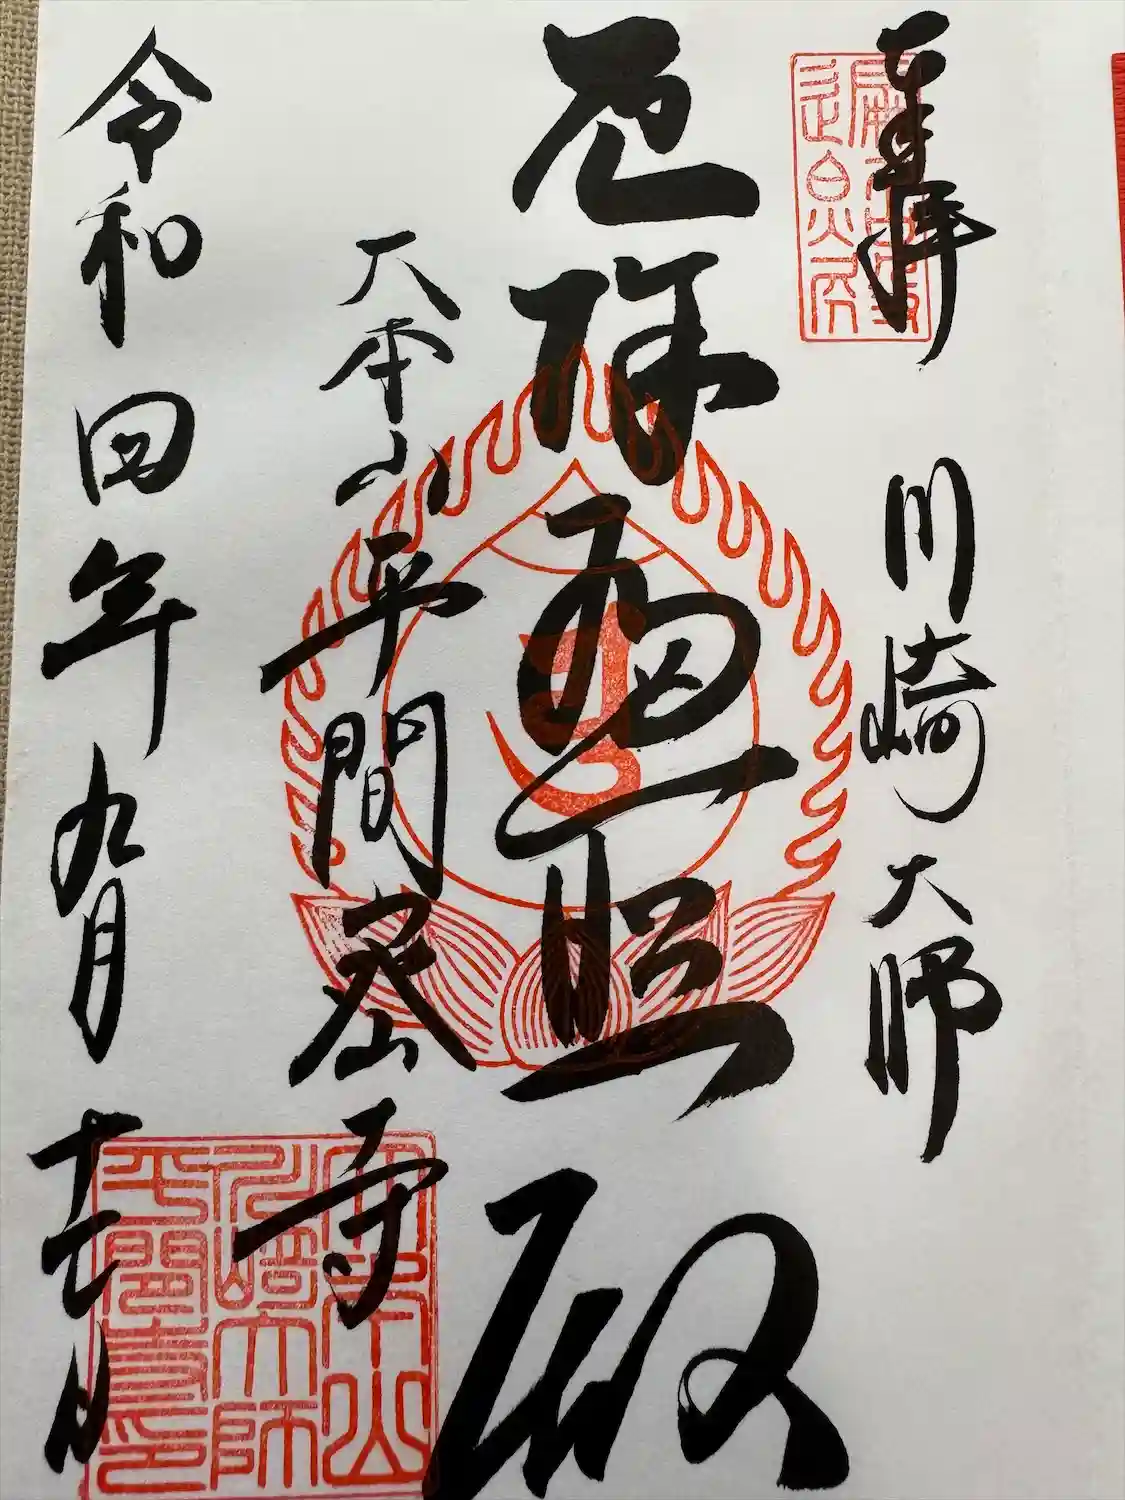 奉拝 川崎大師
厄除遍照殿
大本山平間密寺
令和四年九月十七日
大本山
川崎大師
平間寺印